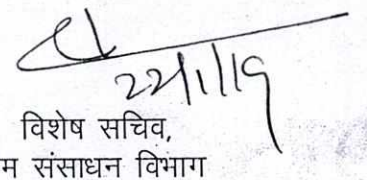 22/1/19
विशेष सचिव,
म संसाधन विभाग